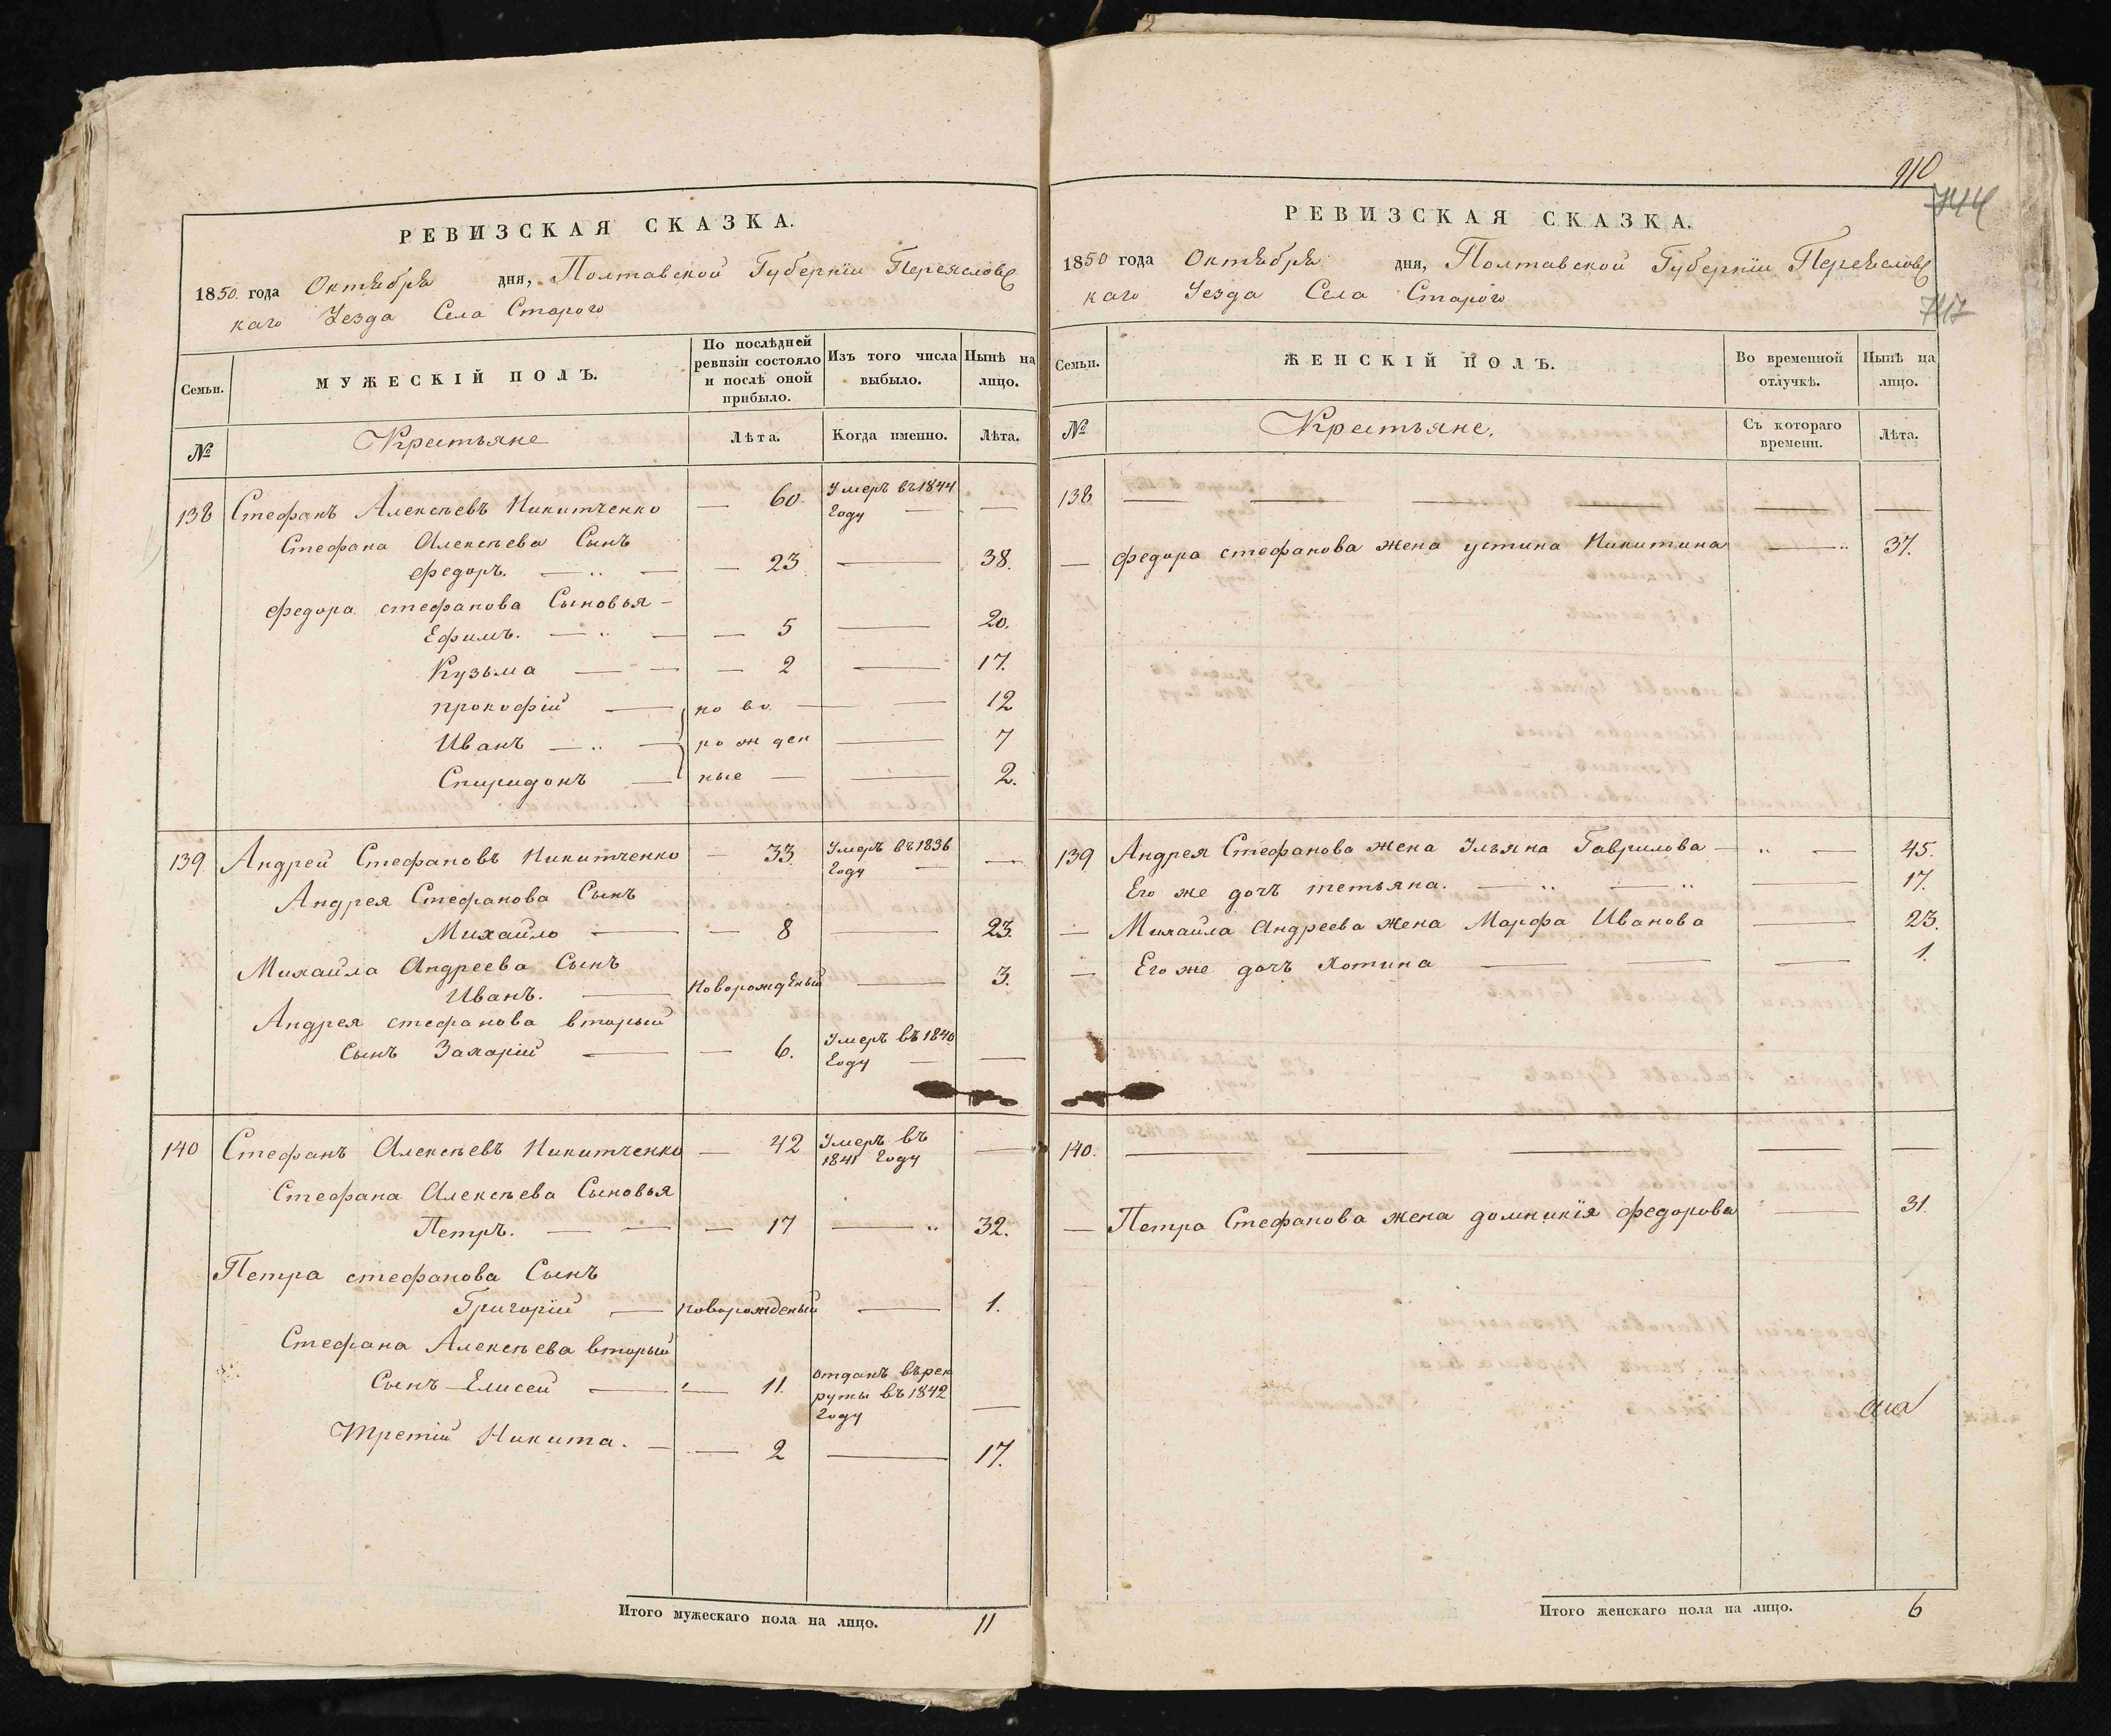 РЕВИЗСКАЯ СКАЗКА.
1850 года Октября дня, Полтавской Губерніи Переяслов
скаго Уезда Села Старого
Семьи.
МУЖЕСКІЙ ПОЛЪ.
По послѣдней ревизіи состояло и послѣ оной прибыло.
Изъ того числа выбыло.
Нынѣ на лицо.
№
Крестьяне
Лѣта.
Когда именно.
Лѣта.
138 Стефанъ Алексѣевъ Никитченко — 60. Умеръ въ 1844 Году — —
Стефана Алексѣева Сынъ
федоръ. — 23 — 38.
федора стефанова Сыновья —
Ефимъ. — 5 — 20.
Кузьма — 2 — 17.
прокофій — ново — 12
Иванъ — рожден — 7
Спиридонъ — ные — 2.
139 Андрей Стефановъ Никитченко — 33. Умеръ въ 1836 Году — —
Андрея Стефанова Сынъ
Михайло — 8 — 23.
Михайла Андреева Сынъ
Иванъ. — новорожденый — 3.
Андрея стефанова вторый
сынъ Захарій — 6. Умеръ въ 1840 Году — —
140 Стефанъ Алексѣевъ Никитченко — 42 Умеръ въ 1841 Году —
Стефана Алексѣева Сыновья
Петръ. — 17 — 32.
Петра стефанова Сынъ
Григорій — новорожденый — 1.
Стефана Алексѣева вторый
Сынъ Елисей — 11. отданъ в рек руты въ 1842 Году —
Третій Никита. — 2 — 17.
Итого мужескаго пола на лицо. 11
910
744
717
РЕВИЗСКАЯ СКАЗКА.
1850 года Октября дня, Полтавской Губерніи Переяслов
скаго Уезда Села Старого
Семьи.
ЖЕНСКІЙ ПОЛЪ.
Во временной отлучкѣ.
Нынѣ на лицо.
№
Крестьяне.
Съ котораго времени.
Лѣта.
138 — — — — — —
— федора стефанова жена устина Никитина — 37.
139 Андрея Стефанова жена Ульяна Гаврилова — — 45.
Его же дочъ тетьяна. — — — 17.
— Михайла Андреева жена Марфа Иванова — 23.
— Его же дочъ Хотина — — — 1.
140. — — — — —
— Петра Стефанова жена домникія федорова — 31.
Итого женскаго пола на лицо. 6